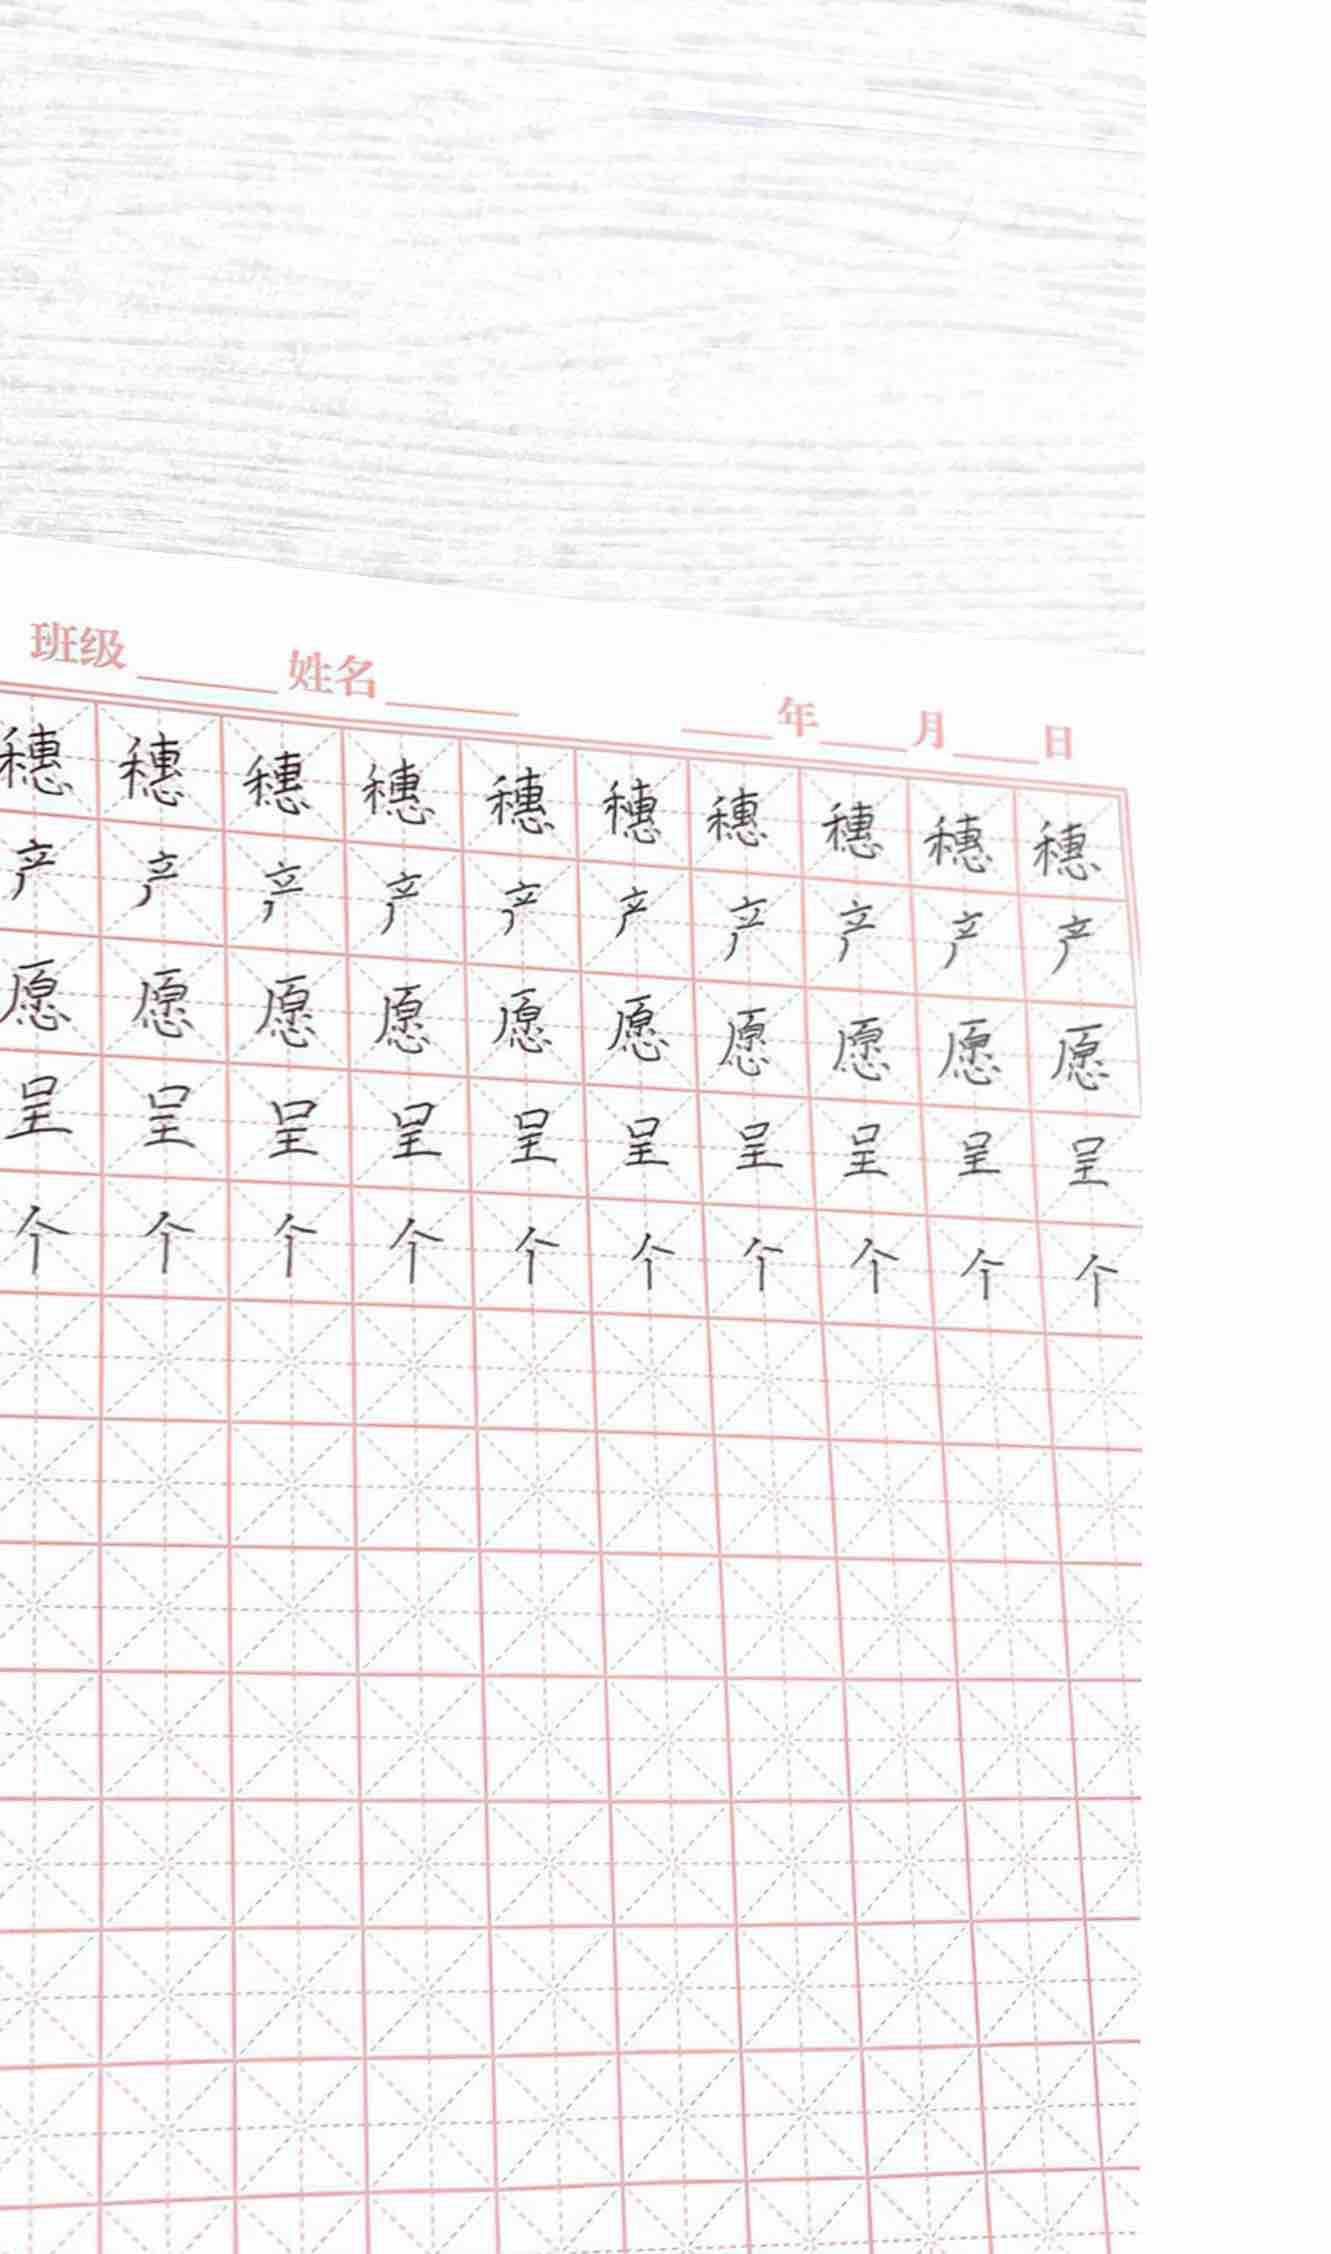 班级 姓名 年 月 日
穗 穗 穗 穗 穗 穗 穗 穗 穗 穗
产 产 产 产 产 产 产 产 产 产
愿 愿 愿 愿 愿 愿 愿 愿 愿 愿
呈 呈 呈 呈 呈 呈 呈 呈 呈 呈
个 个 个 个 个 个 个 个 个 个